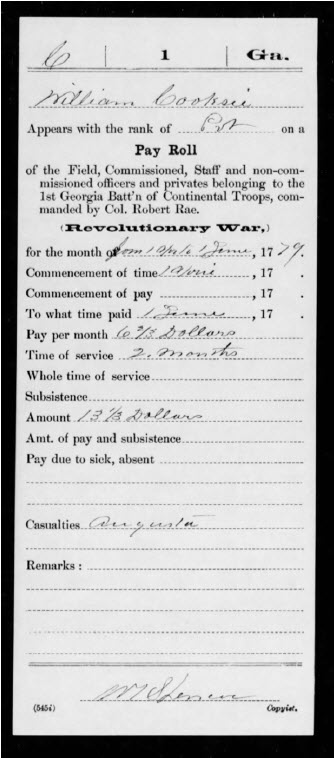 C | 1 | Ga.
William Cooksie
Appears with the rank of Pvt on a
Pay Roll
of the Field, Commissioned, Staff and non-com-
missioned officers and privates belonging to the
1st Georgia Batt'n of Continental Troops, com-
manded by Col. Robert Rae.
(Revolutionary War,)
for the month of from 1 Apr to 1 June, 1779.
Commencement of time 1 April, 17 .
Commencement of pay , 17 .
To what time paid 1 June, 17 .
Pay per month 6 2/3 Dollars
Time of service 2. Months
Whole time of service
Subsistence
Amount 13 1/3 Dollars
Amt. of pay and subsistence
Pay due to sick, absent
Casualties Augusta
Remarks :
(545i) Copyist.